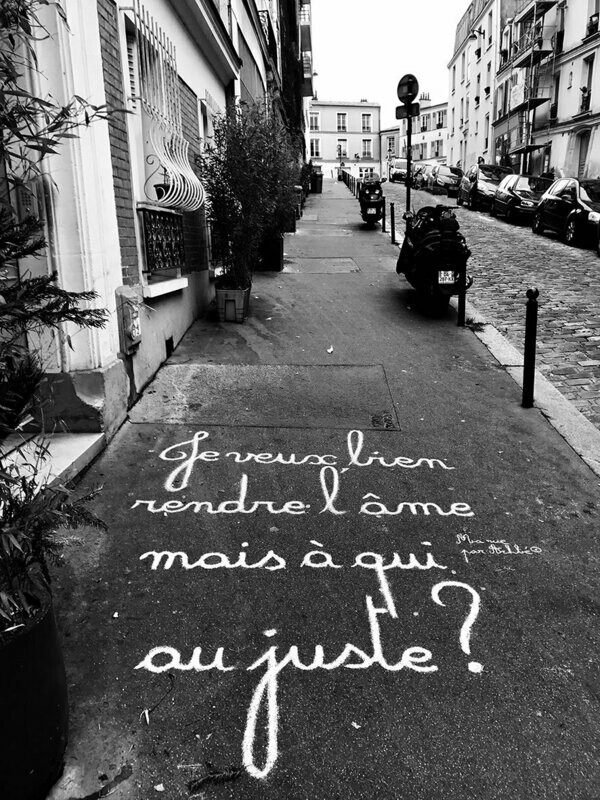 Je veux bien
rendre l'âme
mais à qui
au juste?
Ma rue
par Achbé